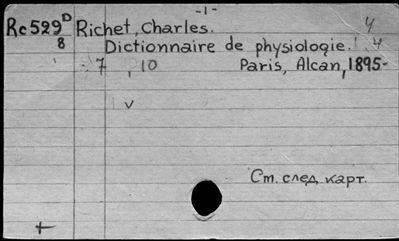 -1-
Rc529D Richet, Charles. 4
8 Dictionnaire de physiologie. 4
7, 10 Paris, Alcan, 1895-
v
См. след. карт.
+